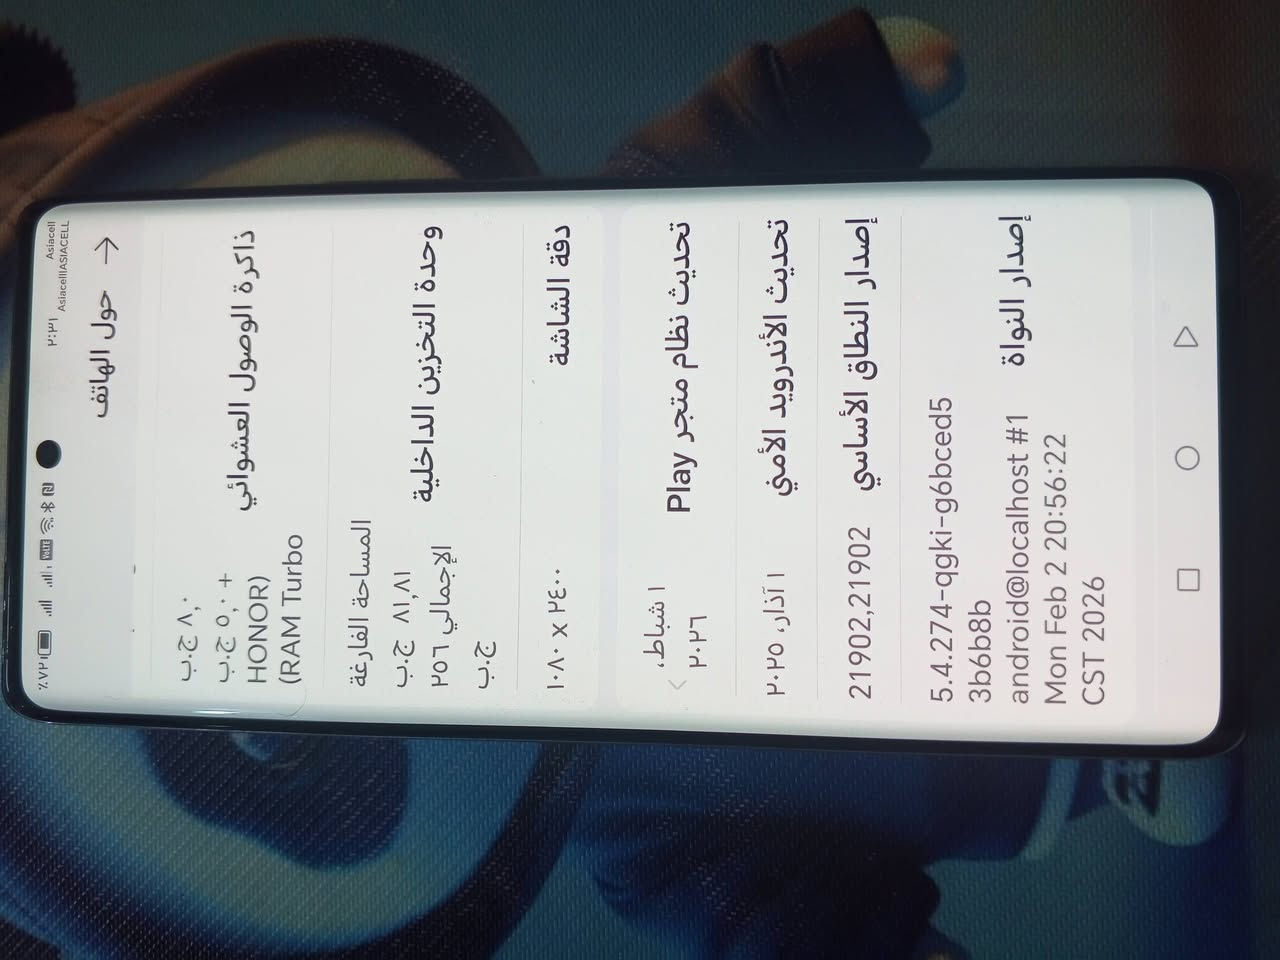 Asiacell
Asiacell|ASIACELL
٢:٣١
VoLTE
٪٧٢
حول الهاتف
ذاكرة الوصول العشوائي
٨,٠ ج.ب
+ ٥,٠ ج.ب
HONOR)
(RAM Turbo
وحدة التخزين الداخلية
المساحة الفارغة
٨١,٨١ ج.ب
الإجمالي ٢٥٦
ج.ب
دقة الشاشة
١٠٨٠ x ٢٤٠٠
تحديث نظام متجر Play
١ شباط،
٢٠٢٦
تحديث الأندرويد الأمني
١ آذار، ٢٠٢٥
إصدار النطاق الأساسي
21902,21902
إصدار النواة
5.4.274-qgki-g6bced5
3b6b8b
android@localhost #1
Mon Feb 2 20:56:22
CST 2026